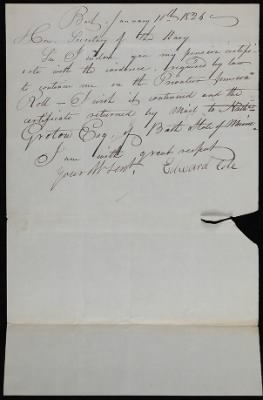 Bath January 11th 1836
Hon. Secretary of the Navy
Sir I inclose you my pension certifi-
cate with the evidence required by law
to continue me on the Privateer Pension
Roll – I wish it continued and the
certificate returned by Mail to
Groton Esq. of Bath State of Maine
I am with great respect
your Obt Servt. Edward Cole